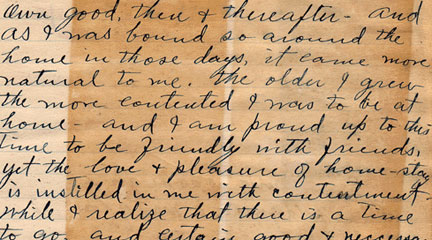 own good, then & thereafter- and
as I was bound so around the
home in those days, it came more
natural to me. The older I grew
the more contented I was to be at
home- and I am proud up to this
time to be friendly with friends,
yet the love & pleasure of home-stay
is instilled in me with contentment-
while I realize that there is a time
to go, and certain good &